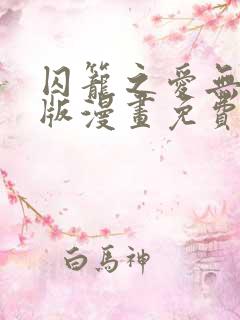 囚籠之愛無
版漫畫免費
白馬神